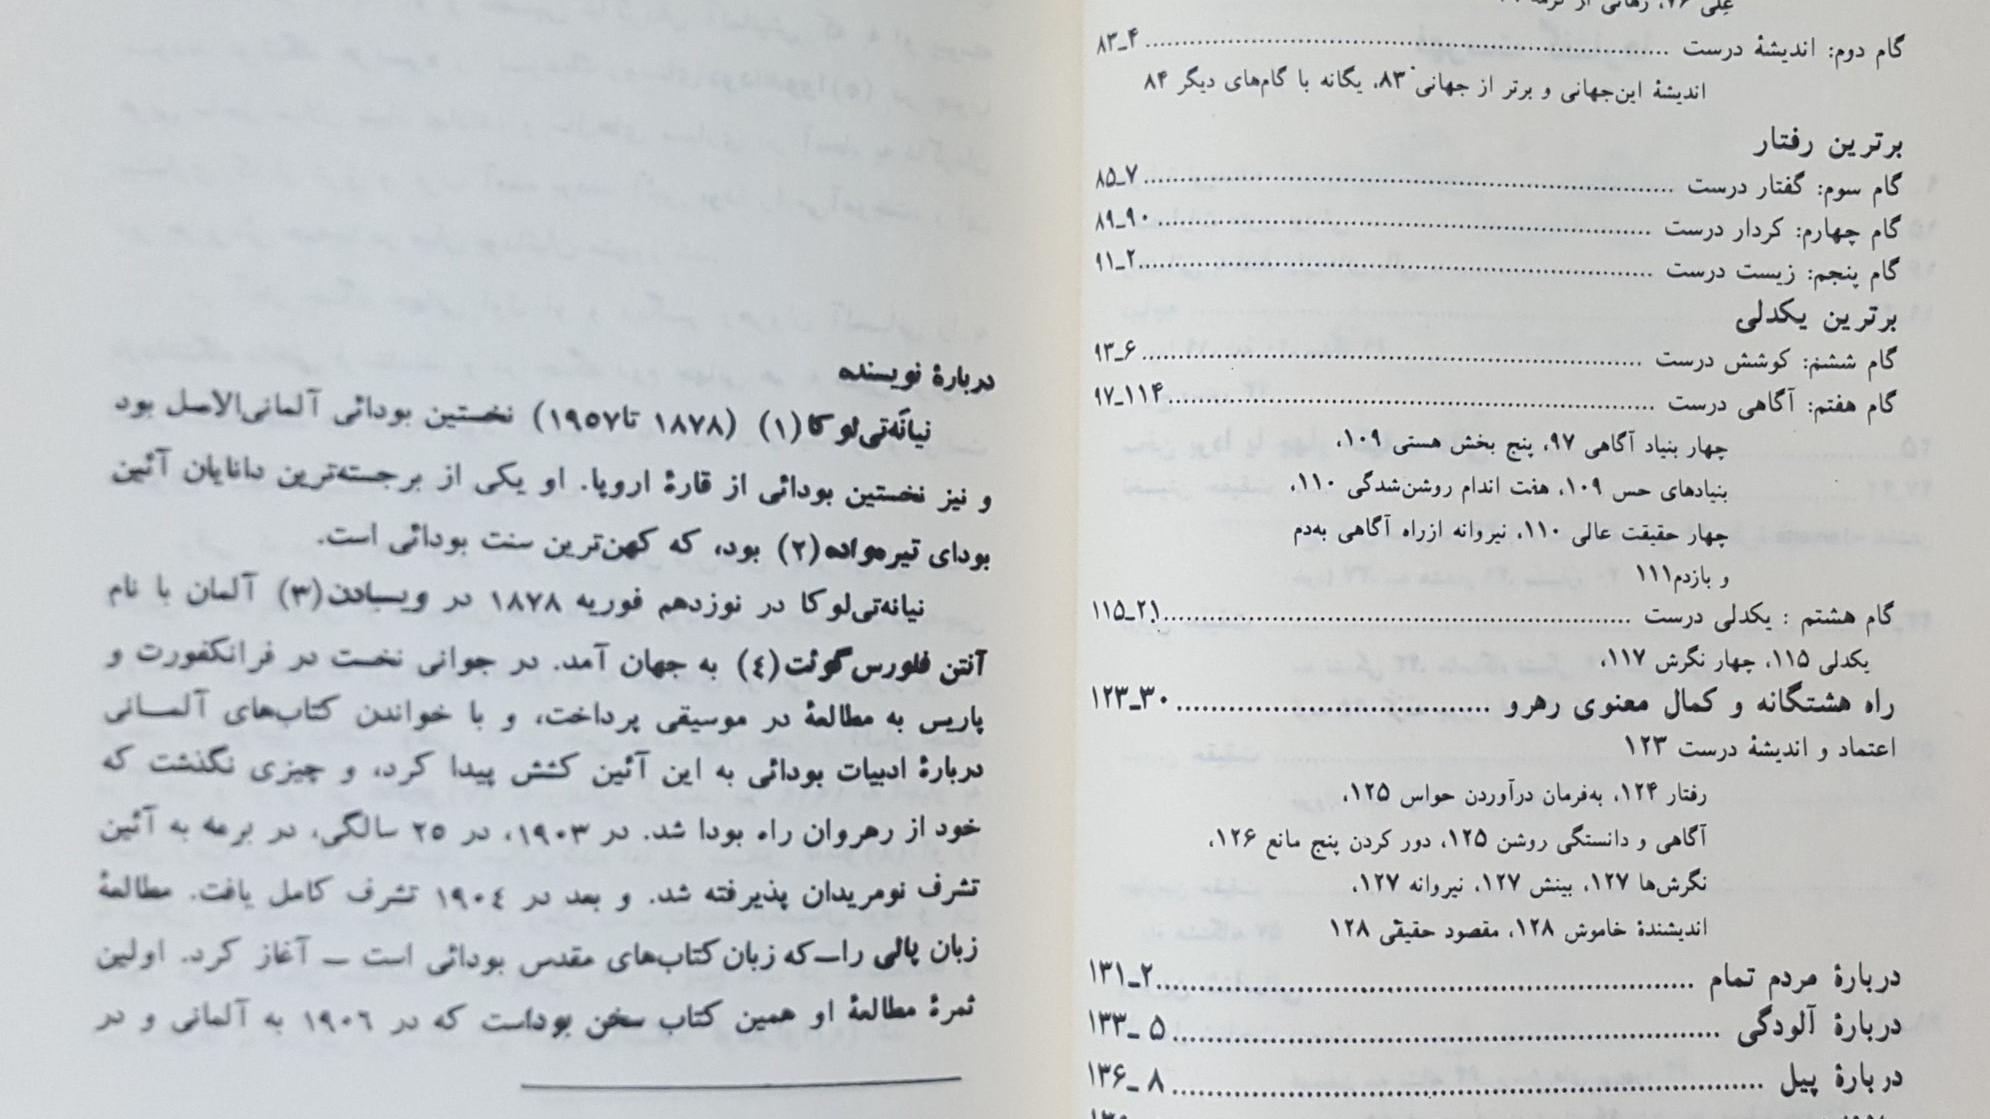 گام دوم: اندیشهٔ درست ........ ۴ـ۸۳
اندیشهٔ این‌جهانی و برتر از جهانی ۸۳، یگانه با گام‌های دیگر ۸۴
برترین رفتار
گام سوم: گفتار درست ........ ۷ـ۸۵
گام چهارم: کردار درست ........ ۹۰ـ۸۹
گام پنجم: زیست درست ........ ۲ـ۹۱
برترین یکدلی
گام ششم: کوشش درست ........ ۶ـ۹۳
گام هفتم: آگاهی درست ........ ۱۱۴ـ۹۷
چهار بنیاد آگاهی ۹۷، پنج بخش هستی ۱۰۹،
بنیادهای حس ۱۰۹، هفت اندام روشن‌شدگی ۱۱۰،
چهار حقیقت عالی ۱۱۰، نیروانه ازراه آگاهی به‌دم
و بازدم ۱۱۱
گام هشتم : یکدلی درست ........ ۲۱ـ۱۱۵
یکدلی ۱۱۵، چهار نگرش ۱۱۷،
راه هشتگانه و کمال معنوی رهرو ........ ۳۰ـ۱۲۳
اعتماد و اندیشهٔ درست ۱۲۳
رفتار ۱۲۴، به‌فرمان درآوردن حواس ۱۲۵،
آگاهی و دانستگی روشن ۱۲۵، دور کردن پنج مانع ۱۲۶،
نگرش‌ها ۱۲۷، بینش ۱۲۷، نیروانه ۱۲۷،
اندیشندهٔ خاموش ۱۲۸، مقصود حقیقی ۱۲۸
دربارهٔ مردم تمام ........ ۲ـ۱۳۱
دربارهٔ آلودگی ........ ۵ ـ۱۳۳
دربارهٔ پیل ........ ۸ ـ۱۳۶
دربارهٔ نویسنده
نیانَه‌تی‌لوکا(۱) (۱۸۷۸ تا۱۹۵۷) نخستین بودائی آلمانی‌الاصل بود
و نیز نخستین بودائی از قارهٔ اروپا. او یکی از برجسته‌ترین دانایان آئین
بودای تیره‌واده(۲) بود، که کهن‌ترین سنت بودائی است.
نیانه‌تی‌لوکا در نوزدهم فوریه ۱۸۷۸ در ویسبادن(۳) آلمان با نام
آنتن فلورس‌گوئت(٤) به جهان آمد. در جوانی نخست در فرانکفورت و
پاریس به مطالعهٔ در موسیقی پرداخت، و با خواندن کتاب‌های آلمـانی
دربارهٔ ادبیات بودائی به این آئین کشش پیدا کرد، و چیزی نگذشت که
خود از رهروان راه بودا شد. در ۱۹۰۳، در ۲۵ سالگی، در برمه به آئین
تشرف نومریدان پذیرفته شد. و بعد در ۱۹۰٤ تشرف کامل یافت. مطالعهٔ
زبان پالی را—که زبان کتاب‌های مقدس بودائی است — آغاز کرد. اولین
ثمرهٔ مطالعهٔ او همین کتاب سخن بوداست که در ۱۹۰٦ به آلمانی و در